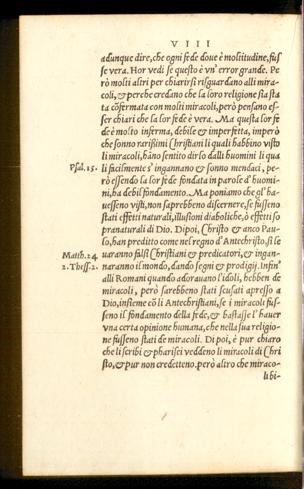 VIII
adunque dire, che ogni fede doue è moltitudine, fuſ
ſe vera. Hor vedi ſe questo è vn' error grande. Pe
rò molti altri per chiarirſi riſguardano alli mira-
coli, & perche credano che la loro religione ſia ſta
ta cõfermata con molti miracoli, però penſano eſ-
ſer chiari che la lor fede è vera. Ma questa lor fe
de è molto inferma, debile & imperfetta, imperò
che ſonno rariſſimi Chriſtiani li quali habbino viſto
li miracoli, hãno ſentito dirſo dalli huomini li qua
Pſal. 15. li facilmente s'ingannano & ſonno mendaci, pe-
rò eſſendo la lor fede fondata in parole d'huomi-
ni, ha debil fondamento. Ma poniamo che gl'ha-
ueſſeno viſti, non ſaprebbeno diſcernere, ſe fuſſeno
ſtati effetti naturali, illuſioni diaboliche, ò effetti ſo
pranaturali di Dio. Dipoi, Chriſto & anco Pau-
lo, han preditto come nel regno d'Antechriſto, ſi le
Matth. 24. uaranno falſi Chriſtiani & predicatori, & ingan-
2. Theſſ. 2. naranno il mondo, dando ſegni & prodigij. Infin'
alli Romani quando adorauano l'Idoli, hebben de
miracoli, però ſarebbeno ſtati ſcuſati apreſſo a
Dio, inſieme cõ li Antechriſtiani, ſe i miracoli fuſ-
ſeno il fondamento della fede, & baſtaſſe l'hauer
vna certa opinione humana, che nella ſua religio-
ne fuſſeno ſtati de miracoli. Di poi, è pur chiaro
che li ſcribi & phariſei veddeno li miracoli di Chri
ſto, & pur non credetteno. però altro che miraco-
li bi-